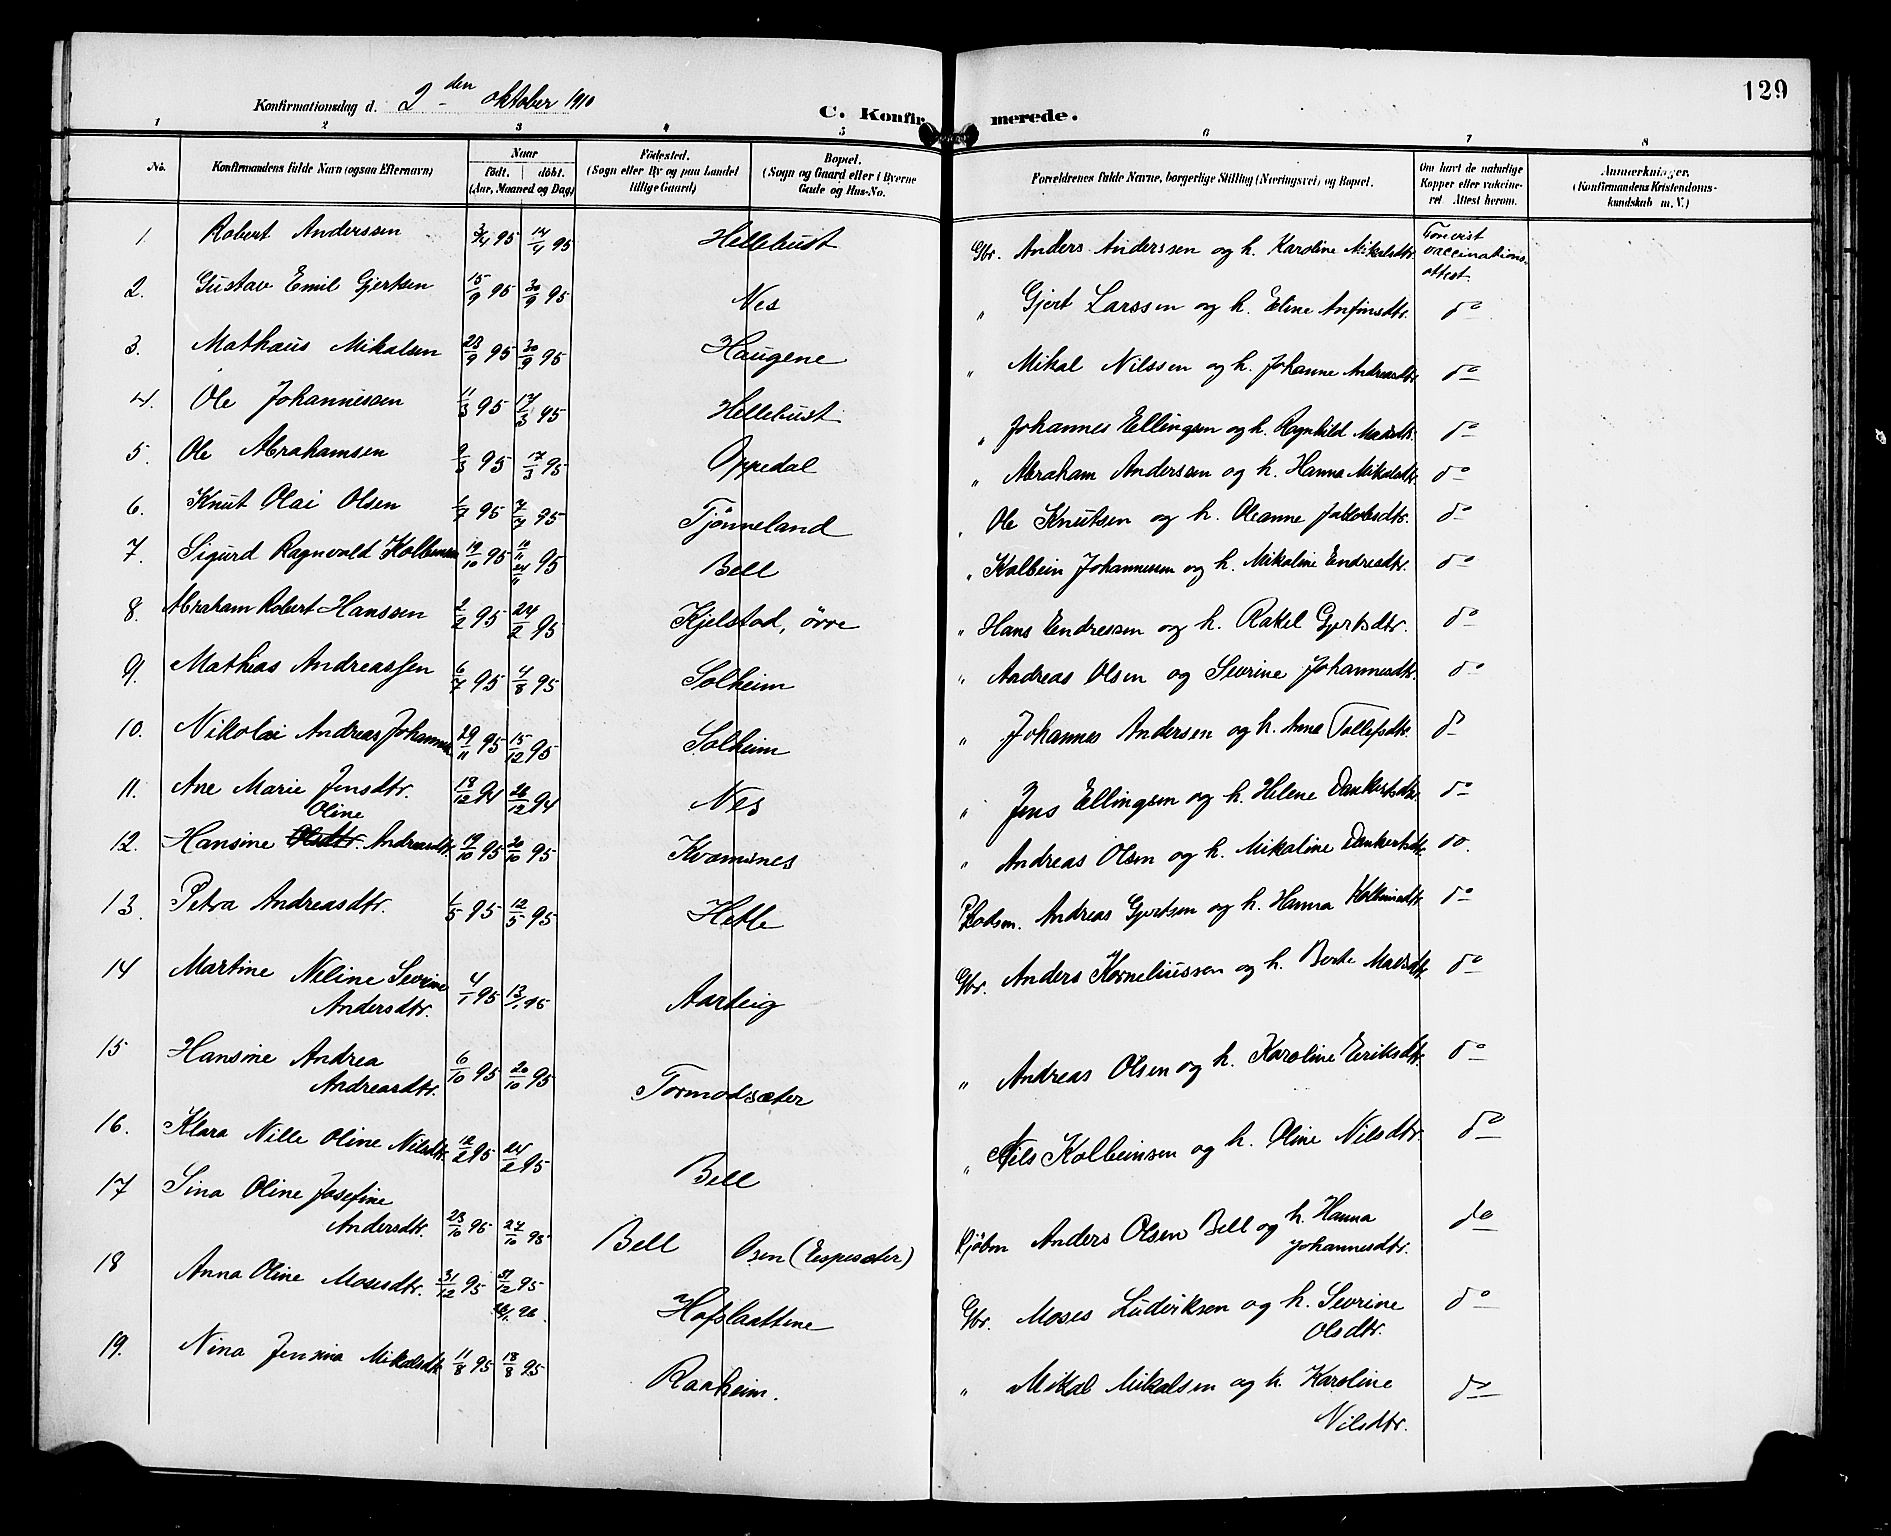 129
Konfirmationsdag d. 2den oktober 1910
C. Konfirmerede.
1 2 3 4 5 6 7 8
No. Konfirmandens fulde Navn (ogsaa Efternavn) Naar födt. döbt. (Aar, Maaned og Dag) Födested. (Sogn eller By og paa Landet tillige Gaard) Bopæl. (Sogn og Gaard eller i Byerne Gade og Hus-No. Forældrenes fulde Navne, borgerlige Stilling (Næringsvei) og Bopæl. Om havt de naturlige Kopper eller vakcineret. Attest herom. Anmærkninger, (Konfirmandens Kristendomskundskab m. V.)
1. Robert Anderssen 3/4 95 14/4 95 Hellebust Gbr. Anders Anderssen og h. Karoline Mikalsdtr. Forevist vaccinationsattest.
2. Gustav Emil Gjertsen 15/9 95 30/9 95 Nes " Gjert Larssen og h. Eline Anfinsdtr. do
3. Mathæus Mikalsen 23/9 95 30/9 95 Haugene " Mikal Nilssen og h. Johanne Andreasdtr do
4. Ole Johannessen 11/3 95 17/3 95 Hellebust " Johannes Ellingsen og h. Ragnhild Madsdtr. do
5. Ole Abrahamsen 9/3 95 17/3 95 Oppedal " Abraham Andersen og h. Hanna Mikalsdtr do
6. Knut Olai Olsen 1/7 95 7/7 95 Tjønneland " Ole Knutsen og h. Oleanne Jakobsdtr. do
7. Sigurd Ragnvald Kolbensen 19/10 95 10/11 24/11 95 Bell " Kolbein Johannessen og h. Mikaline Endresdtr. do
8. Abraham Robert Hanssen 2/2 95 24/2 95 Kjelstad, øvre " Hans Endressen og h. Rakel Gjertsdtr. do
9. Mathias Andreassen 6/7 95 4/8 95 Solheim " Andreas Olsen og Sevrine Johannesdtr. do
10. Nikolai Andreas Johannes 29/11 95 15/12 95 Solheim " Johannes Andersen og h. Anna Tollefsdtr. do
11. Ane Marie Jensdtr. 18/12 94 26/12 94 Nes " Jens Ellingsen og h. Helene Dankertsdtr. do
Oline
12. Hansine Olsdtr. Andreasdtr. 19/10 95 20/10 95 Kvamsnes " Andreas Olsen og h. Mikaline Dankertsdtr. do.
13. Petra Andreasdtr. 1/5 95 12/5 95 Hetle Pladsm. Andreas Gjertsen og h. Hanna Kolbeinsdtr. do
14 Martine Neline Sevrine Andersdtr. 4/1 95 13/1 95 Aarleig Gbr. Anders Korneliussen og h. Berte Madsdtr. do
15 Hansine Andrea Andreasdtr. 6/10 95 20/10 95 Tormodsæter " Andreas Olsen og h. Karoline Eriksdtr. do
16. Klara Nille Oline Nilsdtr. 12/2 95 24/2 95 Bell " Nils Kolbeinsen og h. Oline Nilsdtr. do
17 Sina Oline Josefine Andersdtr. 23/10 95 27/10 95 Bell Osen (Espesæter) Kjøbm Anders Olsen Bell og h. Hanna Johannesdtr. do
18 Anna Oline Mosesdtr. 31/12 95 31/12 95 26/1 96. Hofslaattene Gbr. Moses Ludviksen og h. Sevrine Olsdtr. do
19. Nina Jensina Mikalsdtr 11/8 95 18/8 95 Raaheim. " Mikal Mikalsen og h. Karoline Nilsdtr. do